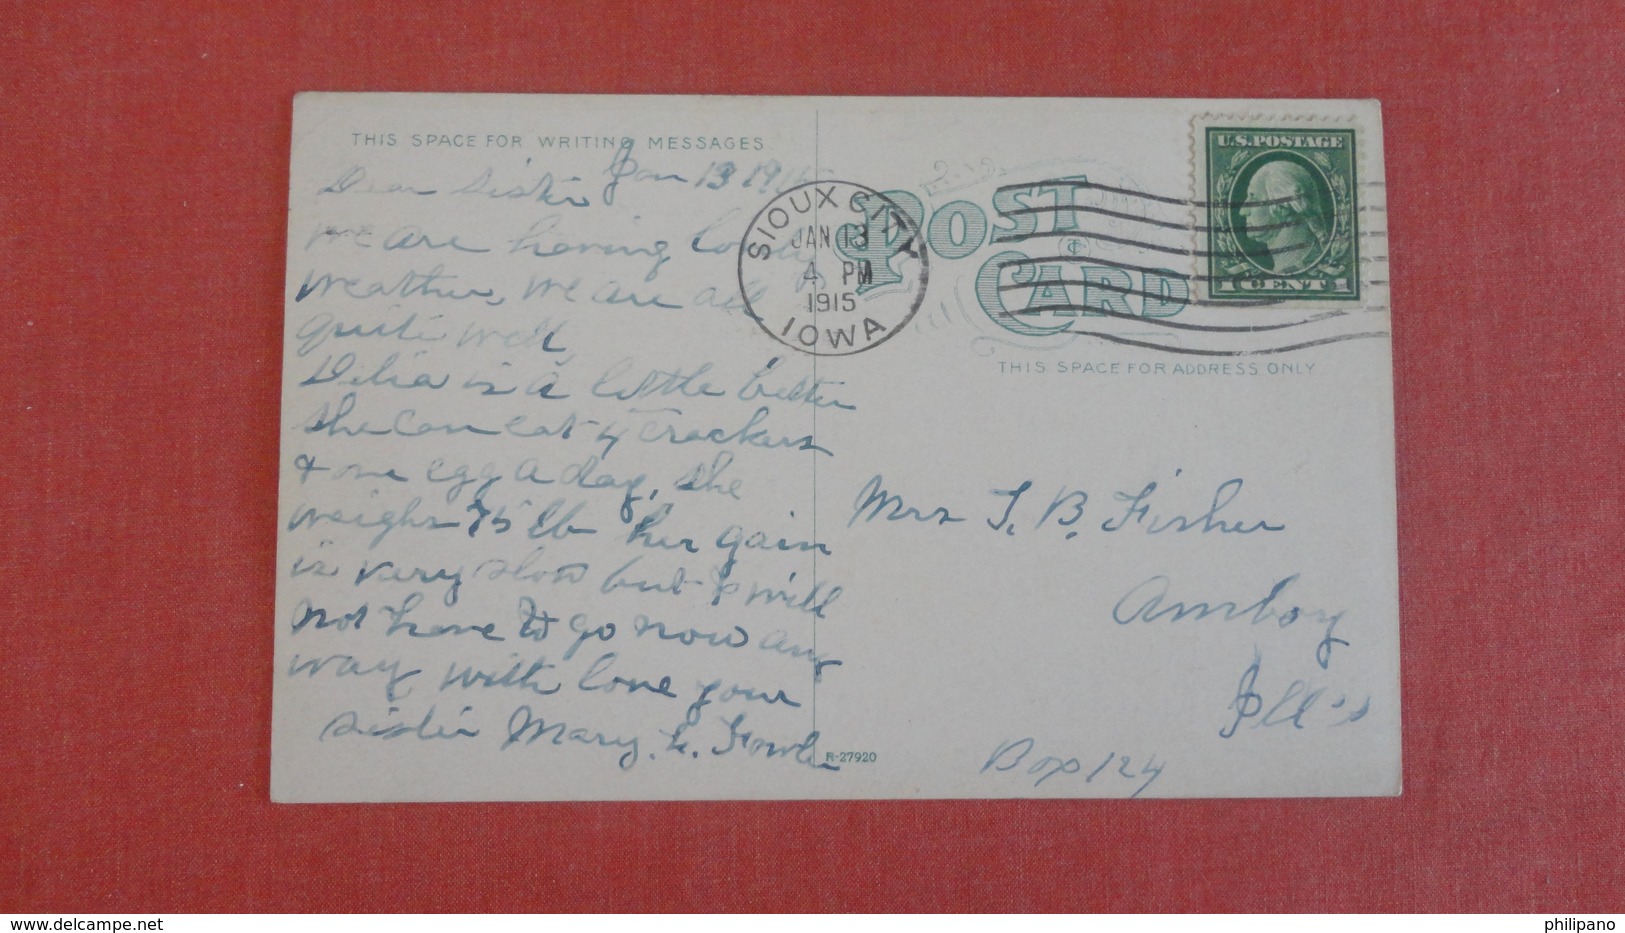 THIS SPACE FOR WRITING MESSAGES
Jan 13 1915
Dear Sister
We are having
weather, we are all
quite well
Delia is a little better
she can eat 4 crackers
& one egg a day, she
weighs 75 lb her gain
is very slow but I will
not have to go now any
way with love your
sister Mary. L. Fowler
SIOUX CITY
JAN 13
4 PM
1915
IOWA
POST CARD
U.S. POSTAGE
1 CENT 1
THIS SPACE FOR ADDRESS ONLY
Mrs T. B. Fisher
Amboy
Ill's
Box 124
R-27920
www.delcampe.net
philipano